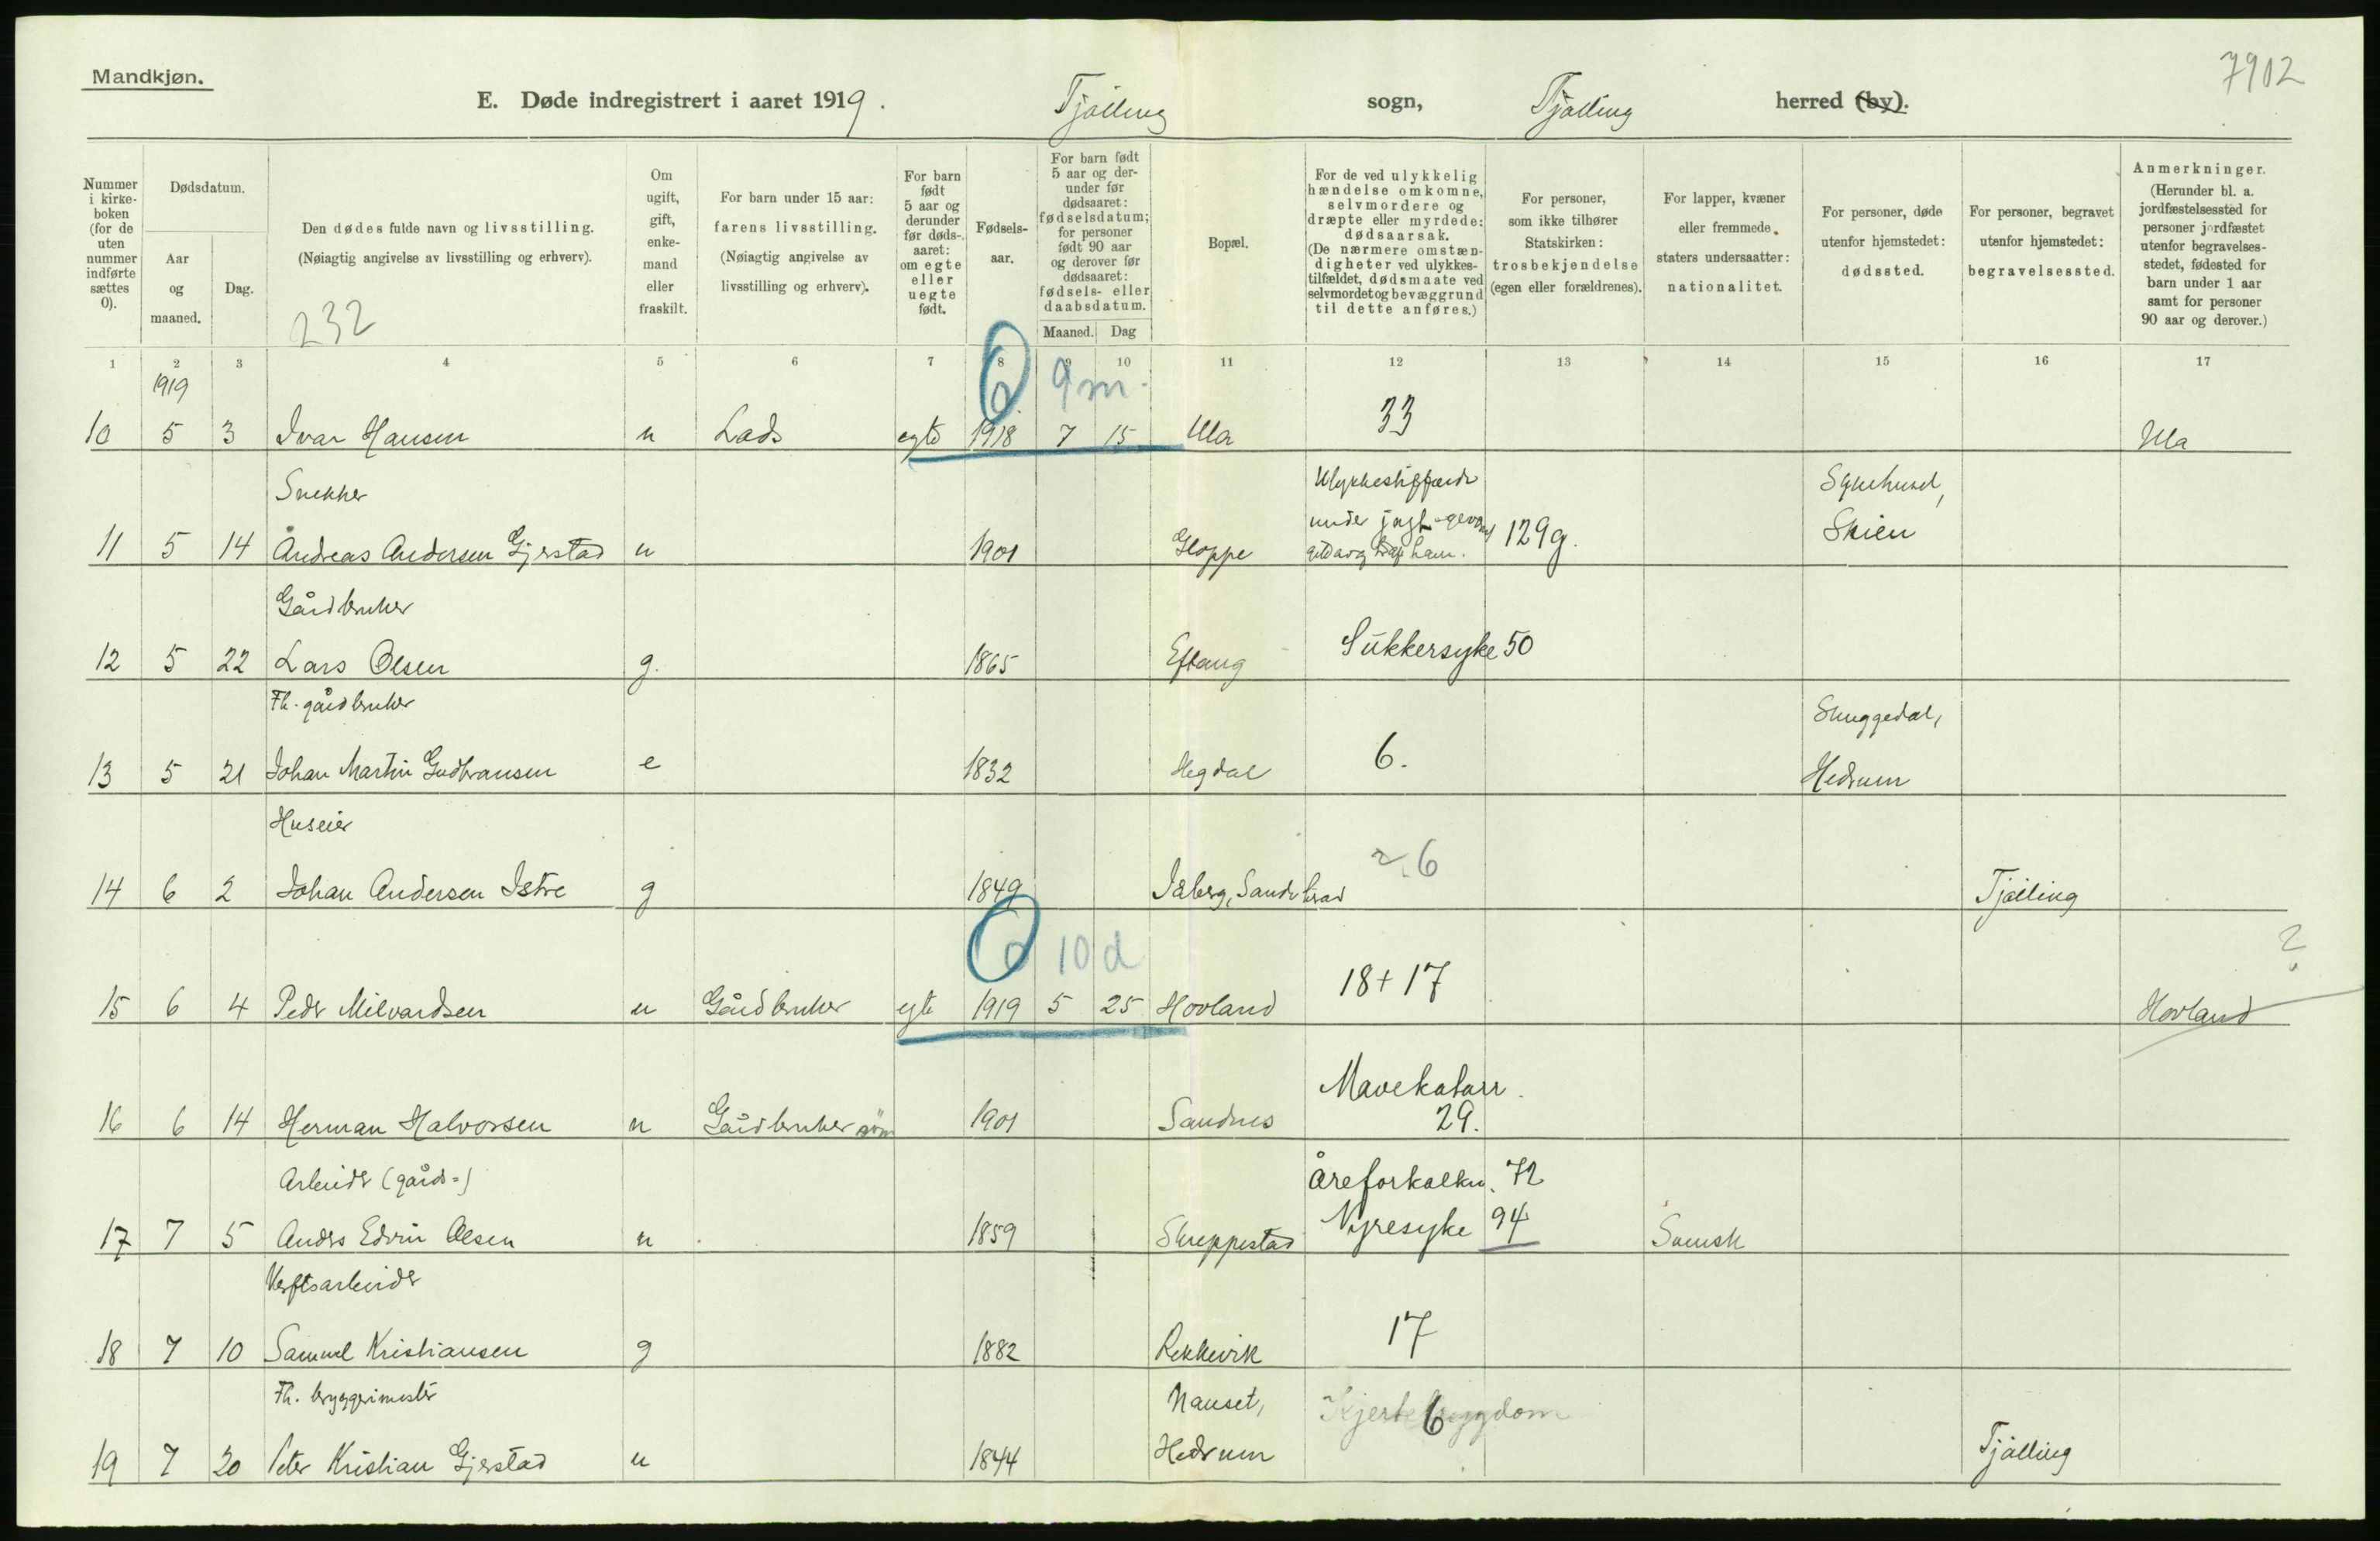 Mandkjøn.
7902
E. Døde indregistrert i aaret 1919. Tjølling sogn, Tjølling herred (by).
Nummer i kirke-boken (for de uten nummer indførte sættes 0).
Dødsdatum.
Aar og maaned.
Dag.
Den dødes fulde navn og livsstilling.
(Nøiagtig angivelse av livsstilling og erhverv).
232
Om ugift, gift, enke-mand eller fraskilt.
For barn under 15 aar: farens livsstilling.
(Nøiagtig angivelse av livsstilling og erhverv).
For barn født 5 aar og derunder før døds-aaret: om egte eller uegte født.
Fødsels-aar.
For barn født 5 aar og der-under før dødsaaret: fødselsdatum; for personer født 90 aar og derover før dødsaaret: fødsels- eller daabsdatum.
Maaned. Dag
Bopæl.
For de ved ulykkelig hændelse omkomne, selvmordere og dræpte eller myrdede: dødsaarsak.
(De nærmere omstæn-digheter ved ulykkes-tilfældet, dødsmaate ved selvmordet og bevæggrund til dette anføres.)
For personer, som ikke tilhører Statskirken: trosbekjendelse (egen eller forældrenes).
For lapper, kvæner eller fremmede staters undersaatter: nationalitet.
For personer, døde utenfor hjemstedet: dødssted.
For personer, begravet utenfor hjemstedet: begravelsessted.
Anmerkninger.
(Herunder bl. a. jordfæstelsessted for personer jordfæstet utenfor begravelses-stedet, fødested for barn under 1 aar samt for personer 90 aar og derover.)
1 2 3 4 5 6 7 8 9 10 11 12 13 14 15 16 17
1919
9 m.
10 5 3 Ivar Hansen u Lods egte 1918 7 15 Ula 33 Ula
Snekker Ulykkestilfælde Sykehuset,
under jagt
11 5 14 Andreas Andersen Gjerstad u 1901 Gloppe ham. 129g. Skien
Gårdbruker
12 5 22 Lars Olsen g. 1865 Eftang Sukkersyke 50
Fh. gårdbruker Skuggedal,
13 5 21 Johan Martin Gudbransen e 1832 Hegdal 6. Hedrum
Huseier
14 6 2 Johan Andersen Istre g 1849 Isberg, Sandeherad 6 Tjølling
10 d ?
15 6 4 Peder Milvardsen u Gårdbruker egte 1919 5 25 Hovland 18+17 Hovland
Mavekatarr.
16 6 14 Herman Halvorsen u Gårdbruker søn 1901 Sandnes 29.
Arbeider (gårds-) Åreforkalkn. 72
17 7 5 Anders Edvin Olsen u 1859 Skreppestad Nyresyke 94 Svensk
Verftsarbeider
18 7 10 Samuel Kristiansen g 1882 Rekkevik 17
Fh. bryggerimester Nauset, Hjertesygdom
19 7 20 Peter Kristian Gjerstad u 1844 Hedrum 6 Tjølling